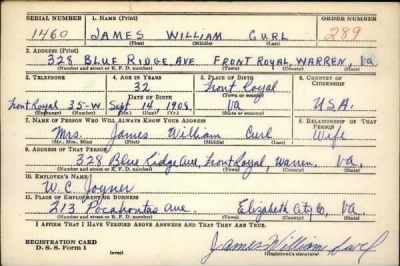 SERIAL NUMBER 1. NAME (Print) ORDER NUMBER
1460 JAMES WILLIAM CURL 289
(First) (Middle) (Last)
2. ADDRESS (Print)
328 BLUE RIDGE AVE FRONT ROYAL, WARREN, Va
(Number and street or R. F. D. number) (Town) (County) (State)
3. TELEPHONE 4. AGE IN YEARS 5. PLACE OF BIRTH 6. COUNTRY OF CITIZENSHIP
32 Front Royal
Front Royal 35-W Sept 14, 1908 Va U.S.A.
(Exchange) (Number) (Mo.) (Day) (Yr.) (State or country)
7. NAME OF PERSON WHO WILL ALWAYS KNOW YOUR ADDRESS 8. RELATIONSHIP OF THAT PERSON
Mrs. James William Curl Wife
(Mr., Mrs., Miss) (First) (Middle) (Last)
9. ADDRESS OF THAT PERSON
328 Blue Ridge Ave, Front Royal, Warren, Va.
(Number and street or R. F. D. number) (Town) (County) (State)
10. EMPLOYER'S NAME
W. C. Joyner
11. PLACE OF EMPLOYMENT OR BUSINESS
213 Pocahontas Ave Elizabeth City Co, Va.
(Number and street or R. F. D. number) (Town) (County) (State)
I AFFIRM THAT I HAVE VERIFIED ABOVE ANSWERS AND THAT THEY ARE TRUE.
REGISTRATION CARD
D. S. S. Form 1 (over) James William Curl
(Registrant's signature)